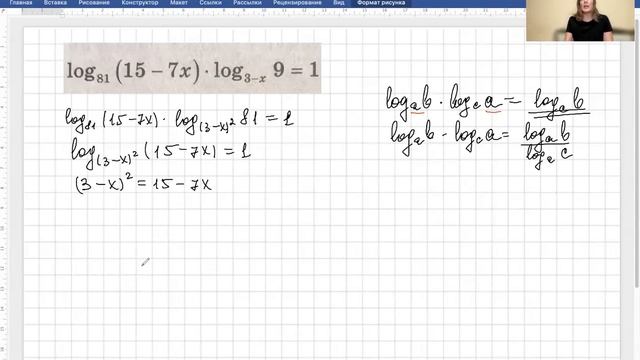 Главная Вставка Рисование Конструктор Макет Ссылки Рассылки Рецензирование Вид Формат рисунка
log₈₁ (15 − 7x) · log₃₋ₓ 9 = 1
log₈₁ (15−7x) · log_(3−x)² 81 = 1
log_(3−x)² (15−7x) = 1
(3−x)² = 15−7x
logₐb · log_c a = log_c b
logₐb · log_c a = logₐb / logₐc